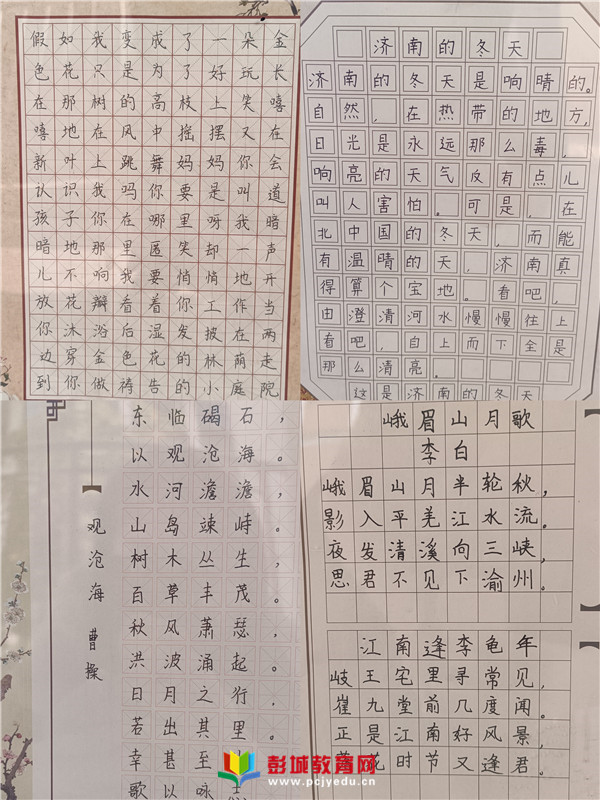 假如我变成了一朵金
色花只是为了好玩长
在那树的高枝上笑嘻
嘻地在风中摇摆又在
新叶上跳舞妈妈你会
认识我吗你要是叫道
孩子你在哪里呀我暗
暗地那里匿笑却一声
儿不响我要悄悄地开
放花瓣看着你工作当
你沐浴后湿发披在两
边穿金色花的林荫走
到你做祷告的小庭院
济南的冬天
济南的冬天是响晴的。
自然,在热带的地方,
日光是永远那么毒,
响亮的天气反有点儿
叫人害怕。可是,在
北中国的冬天,而能
有温晴的天,济南真
得算个宝地。看吧,
由澄清河水慢慢往上
看吧,自上而下全是
那么清亮。
这是济南的冬天
【观沧海 曹操
东临碣石,
以观沧海。
水河澹澹,
山岛竦峙。
树木丛生,
百草丰茂。
秋风萧瑟,
洪波涌起。
日月之行,
若出其里。
幸甚至
歌以咏
峨眉山月歌
李白
峨眉山月半轮秋,
影入平羌江水流。
夜发清溪向三峡,
思君不见下渝州。
江南逢李龟年
岐王宅里寻常见,
崔九堂前几度闻。
正是江南好风景,
花时节又逢君。
彭城教育网
www.pcjyedu.cn